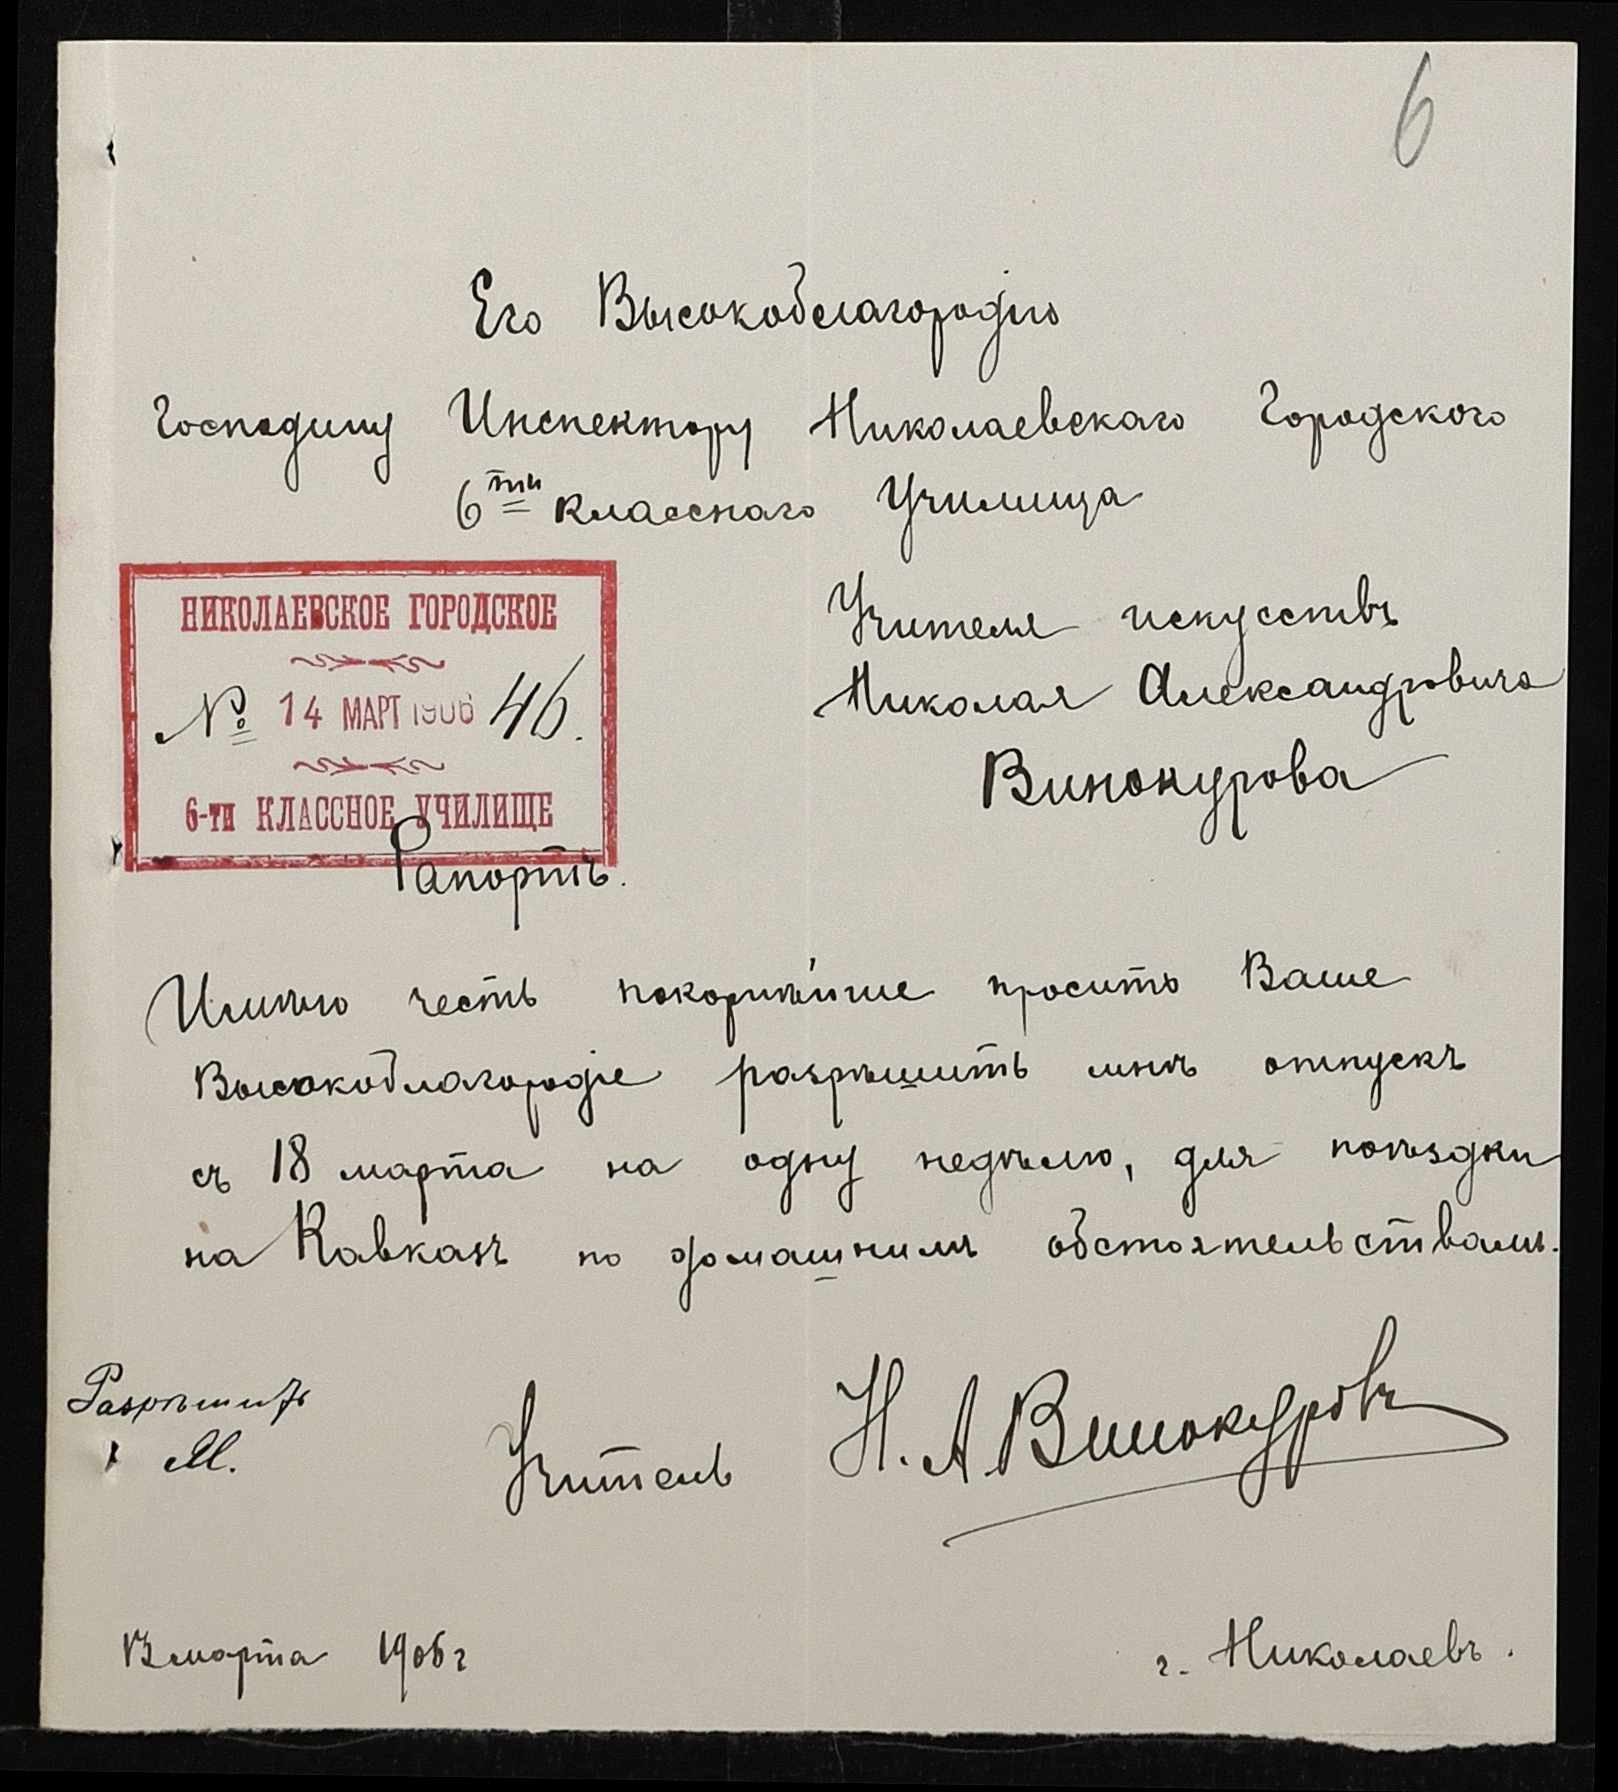 6
Его Высокоблагородію
Господину Инспектору Николаевскаго Городского
6ти классного Училища
НИКОЛАЕВСКОЕ ГОРОДСКОЕ
№ 14 МАРТ 1906 46.
6-ти КЛАССНОЕ УЧИЛИЩЕ
Учителя искусствъ
Николая Александровича
Винокурова
Рапортъ.
Имѣю честь покорнѣйше просить Ваше
Высокоблагородіе разрѣшить мнѣ отпускъ
съ 18 марта на одну недѣлю, для поѣздки
на Кавказъ по домашнимъ обстоятельствамъ.
Разрѣшить
М.
Учитель Н. А. Винокуровъ
13 марта 1906 г
г. Николаевъ.